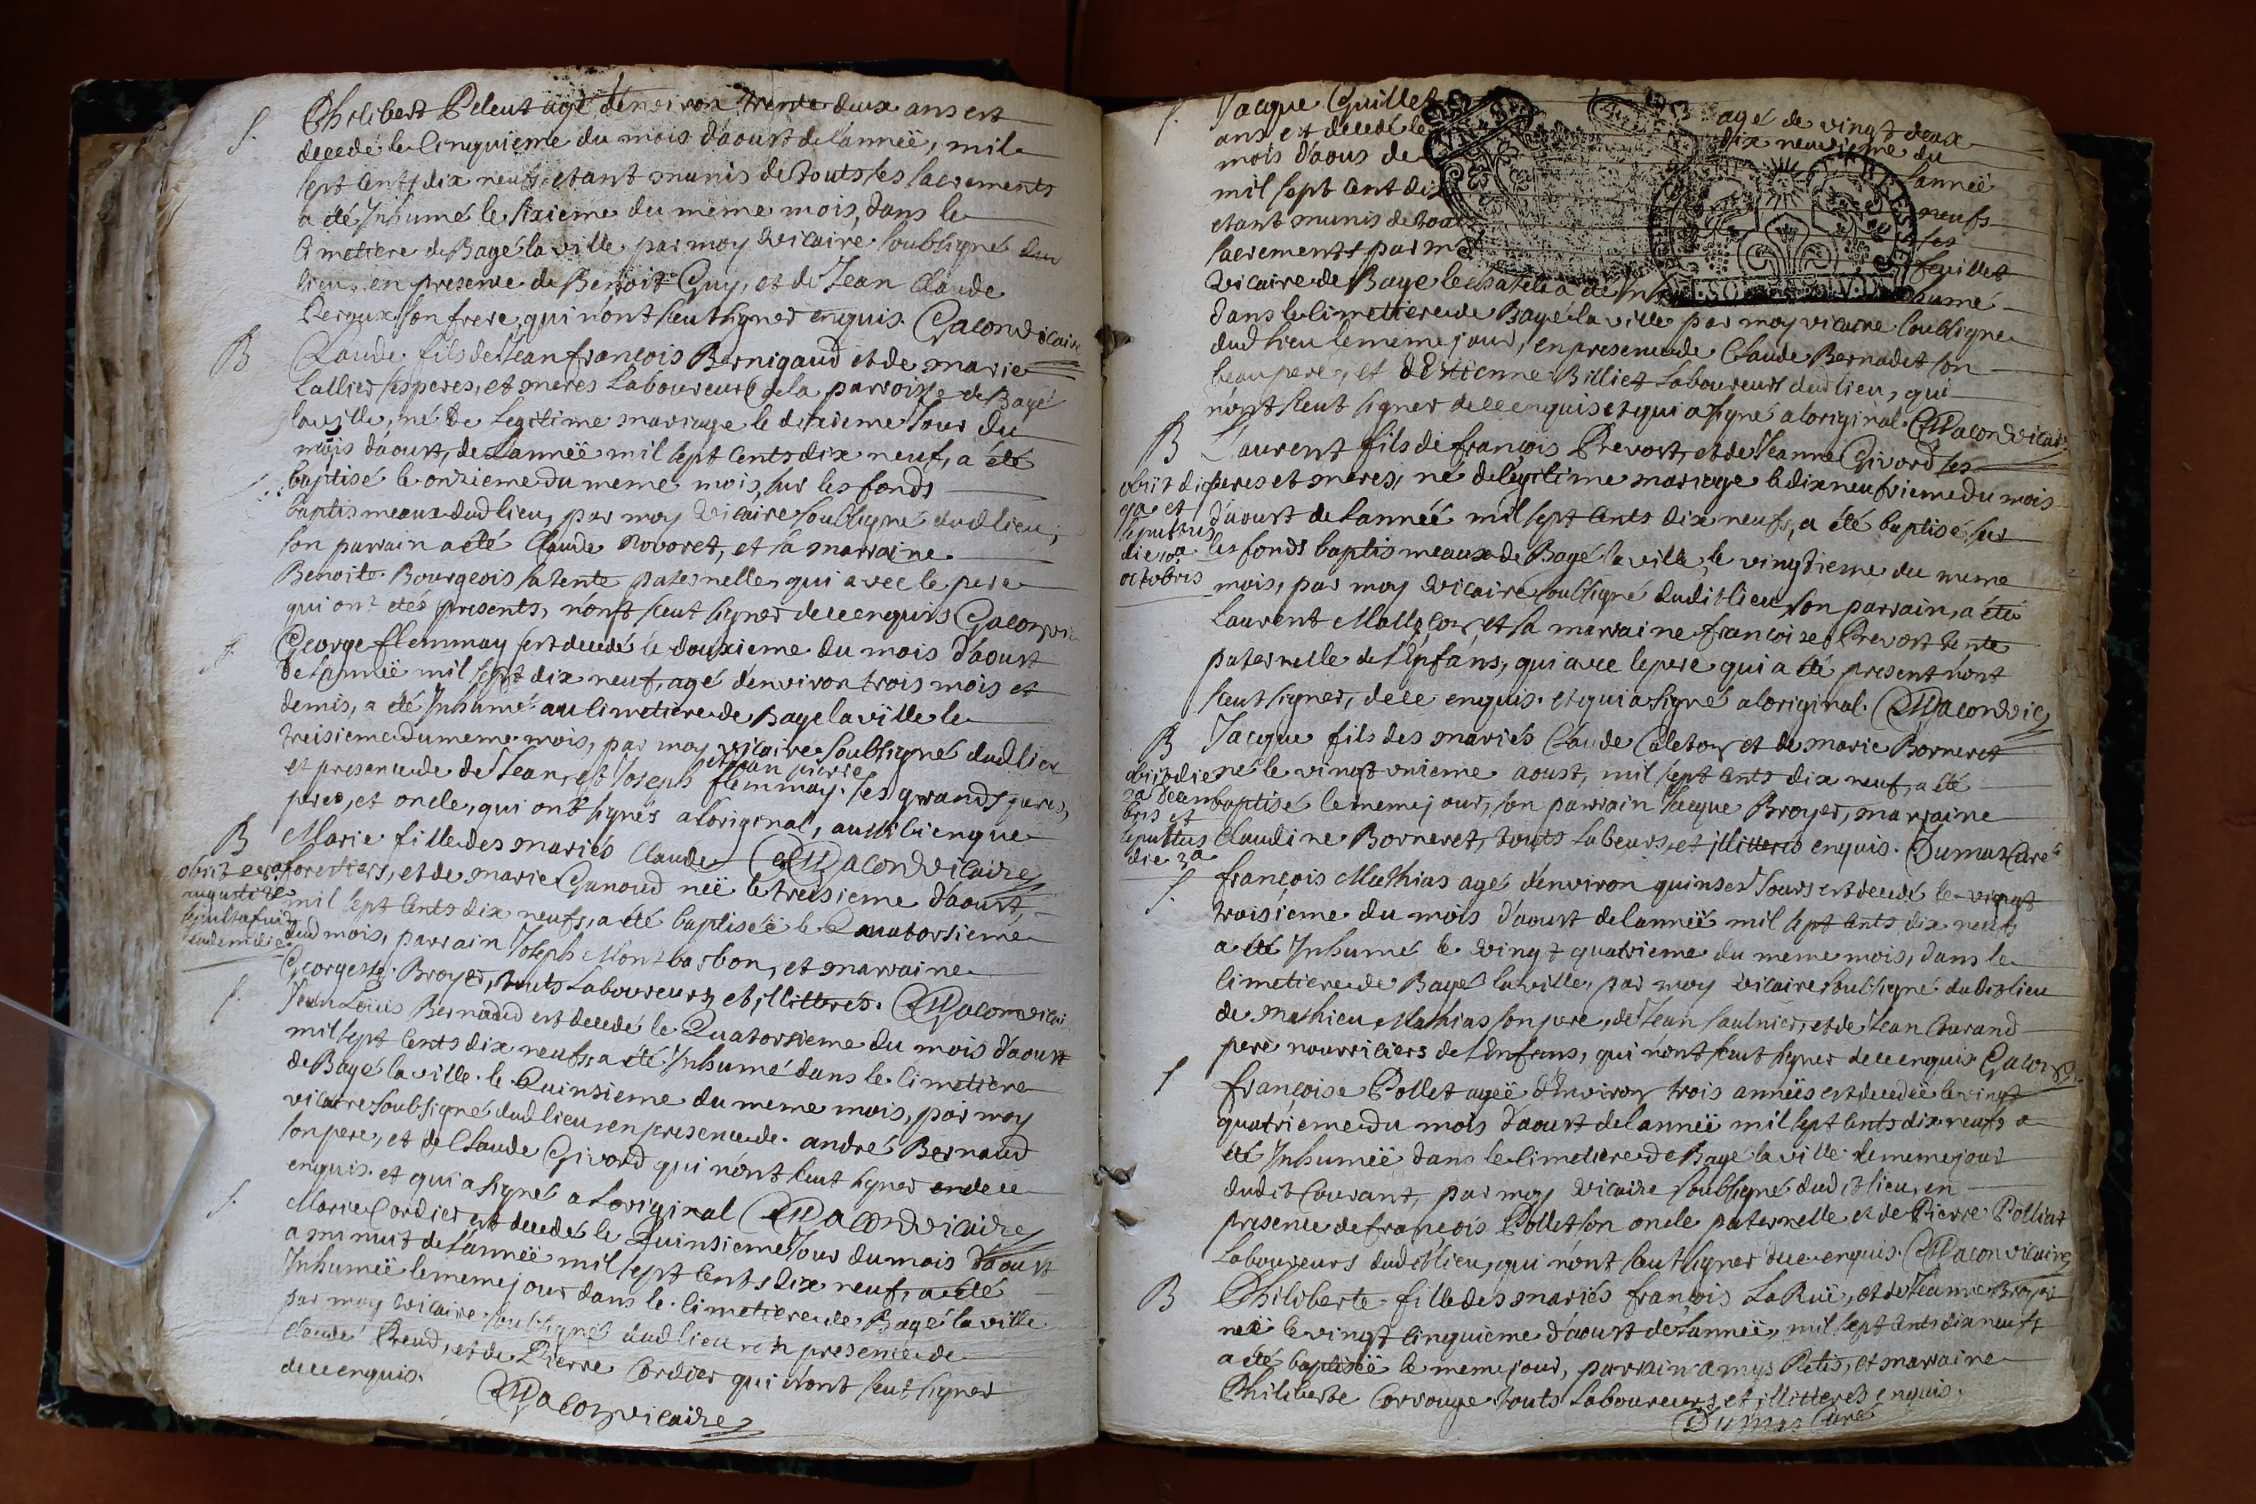 S. Philibert Peleut agé d'environ trente deux ans est
decedé le Cinquieme du mois d'aoust de l'anneë, mil
sept Cents dix neufs, etant munis de touts les sacrements
a été Inhumé le sixieme du meme mois, dans le
Cimetiere de Bagé la ville par moy vicaire soubsigné dud
lieu, en presence de Benoit Guy, et de Jean Claude
son frere, qui n'ont sceut signer enquis. Gacon vicaire
B Claude fils de Jean françois Bernigaud et de marie
Lallier ses peres, et meres Laboureurs de la parroisse de Bagé
la ville, né de Legitime mariage le dixieme Jour du
mois d'aoust, de Lanneë mil sept Cents dix neuf, a été
baptisé le onzieme du meme mois, sur les fonds
baptismeaux dud lieu, par moy vicaire soubsigné dud lieu,
son parrain a été Claude Novoret, et sa marraine
Benoite Bourgeois sa tente paternelle, qui avec le pere
qui ont etés presents, n'ont sceut signer de ce enquis Gacon vic
S. George flemmay est decedé le douxieme du mois d'aoust
de Lanneë mil sept dix neuf, agé d'environ trois mois et
demis, a été Inhumé au Cimetiere de Bage la ville le
treisieme du meme mois, par moy vicaire soubsigné dud lieu
et jean pierre
et presence de de Jean, et Joseph flemmay. ses grands peres,
peres, et oncle, qui ont signés a loriginal, aussi bien que
B Marie fille des mariés Claude Gacon vicaire
obiit
forestiers, et de marie Ganoud neë le treisieme d'aoust,
augusti
mil sept Cents dix neufs, a été baptiseë le Quatorsieme
sepulta fuit
dud mois, parrain Joseph Montbarbon, et marraine
eadem die
Georgette Broyer, touts Laboureurs et illitterés. Gacon vicai
S. Jean Loüis Bernaud est decedé le Quatorsieme du mois d'aoust
mil sept Cents dix neufs, a été Inhumé dans le Cimetiere
de Bagé la ville le Quinsieme du meme mois, par moy
vicaire soubsigné dud lieu, en presence de andré Bernaud
son pere, et de Claude Givord qui n'ont sceut signer de ce
enquis et qui a signé a Loriginal Gacon vicaire
S. Marie Cordier est decedé le Quinsieme Jour du mois d'aoust
a minuit de lanneë mil sept Cents dix neuf, a été
Inhumeë le meme jour dans le Cimetiere de Bagé la ville
par moy vicaire soubsigné dud lieu en presence de
Claude et de Pierre Cordier qui n'ont sceut signer
de ce enquis.
Gacon vicaire
S. Jacque Guillet agé de vingt deux
ans est decedé le dix neuvieme du
mois d'aous de lanneë
mil sept Cent dix neufs
etant munis de touts les
sacrements par feuillet
vicaire de Bage le chatel a été Inhumé
dans le Cimettiere de Bagé la ville par moy vicaire soubsigne
dud lieu le meme jour, en presence de Claude Bernadet son
beau pere, et d'Etienne Billiet Laboureurs dud lieu, qui
n'ont sceut signer de ce enquis et qui a signé a loriginal. Gacon vicai.
B Laurent fils de françois Prevost, et de Jeanne Givord ses
obiit die
peres et meres, né de legitime mariage le dix neufvieme du mois
9a et
d'aoust de Lanneé mil sept Cents dix neufs, a été baptisé sur
sepultus
les fonds baptismeaux de Bagé la ville, le vingtieme du meme
die 10a
octobris
mois, par moy vicaire soubsigné dudit lieu, son parrain, a été
Laurent et sa marraine françoise Prevost tente
paternelle de l'Enfans, qui avec le pere qui a été present n'ont
sceut signer, de ce enquis. et qui a signé a loriginal. Gacon vic
B Jacque fils des mariés Claude Caleton et de marie Borneret
obiit die
né le vingt unieme aoust, mil sept Cents dix neuf, a été
2a decem
baptisé le meme jour, son parrain Jacque Broyer, marraine
bris et
sepultus
Claudine Borneret, touts Labeurs, et illitteres enquis. Dumas Curé
die 3a
S. françois Mathias agé d'environ quinses Jours est decedé le vingt
troisieme du mois d'aoust de lanneë mil sept Cents dix neufs
a été Inhumé le vingt quatrieme du meme mois, dans le
Cimetiere de Bagé la ville, par moy vicaire soubsigné dudit lieu
de Mathieu Mathias son pere, de Jean saulnier, et de Jean Durand
pere nourriciers de l'Enfans, qui n'ont sceut signer de ce enquis Gacon
S. françoise Pollet ageë d'Environ trois anneës est decedeë le vingt
quatrieme du mois d'aoust de lanneë mil sept Cents dix neufs a
été Inhumeë dans le Cimetiere de Bagé la ville le meme jour
dudit Courant, par moy vicaire soubsigné dudit lieu, en
presence de françois Pollet son oncle paternelle et de Pierre Polliat
Laboureurs dudit lieu, qui n'ont sceut signer de ce enquis. Gacon vicaire
B Philiberte fille des mariés françois LaRuë, et de Jeanne Broyer
neë le vingt Cinquieme d'aoust de Lanneë, mil sept Cents dix neufs
a été baptiseë le meme jour, parrain amys Petis, et marraine
Philiberte Corrouge touts Laboureurs et illitterés enquis.
Dumas Curé